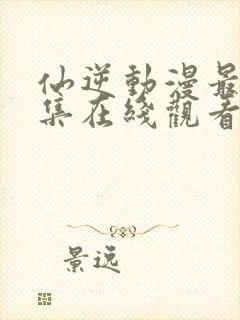 仙逆動漫最
集在綫觀看
景逸